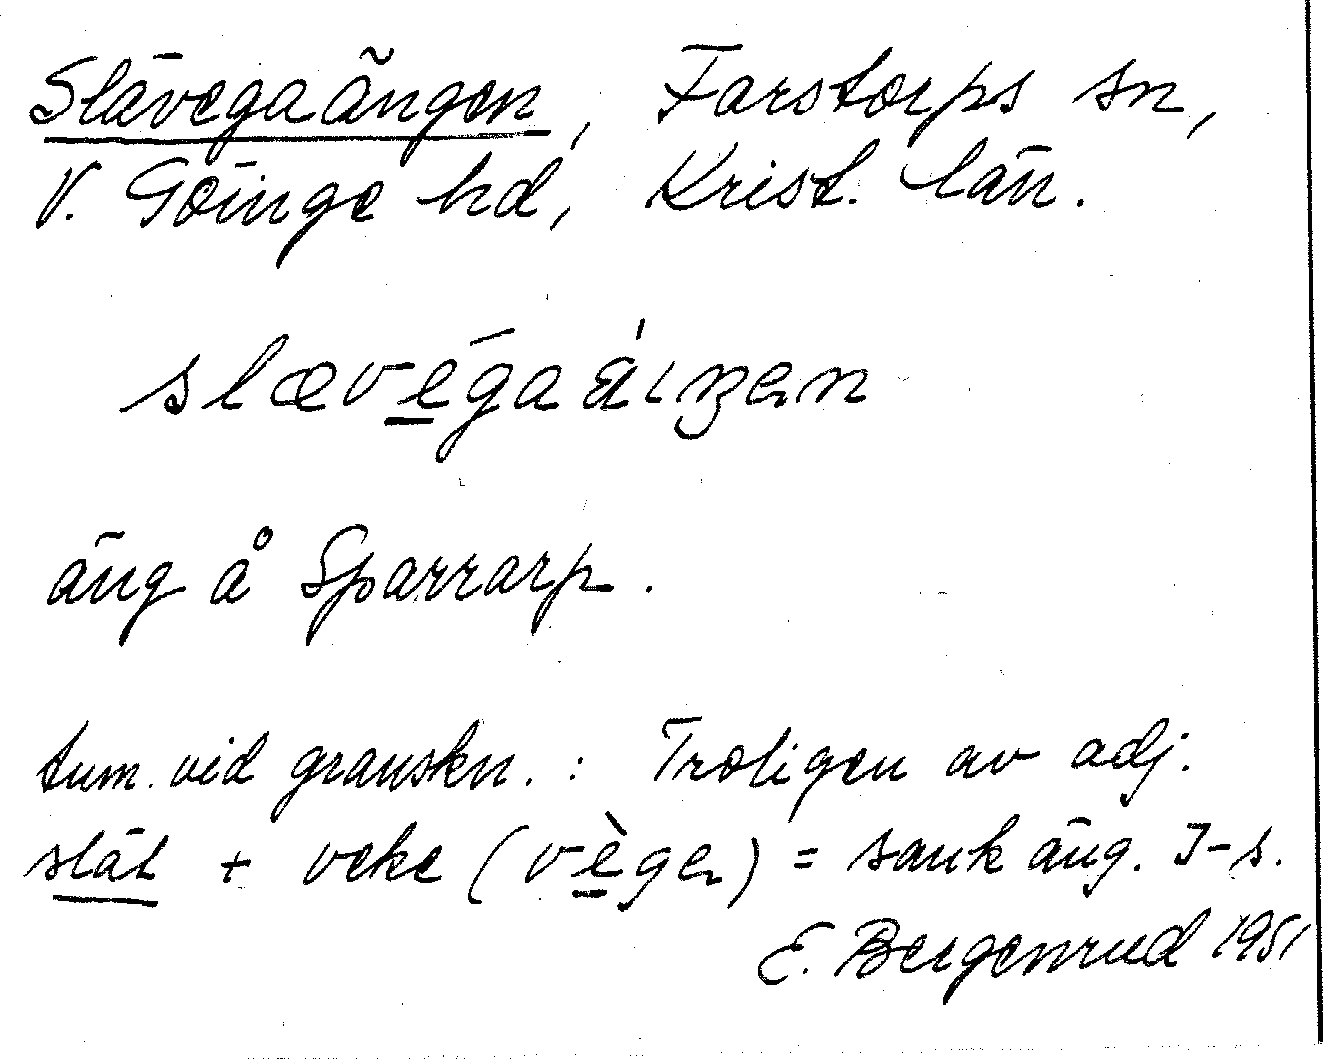 Slävegaängen, Farstorps sn,
V. Göinge hd, Krist. län.
slævé̱gaáıŋən
äng å Sparrarp.
tum. vid granskn. : Troligen av adj.
slät + veke (vè̱gə) = sank äng. I-s.
E. Bergenrud 1951